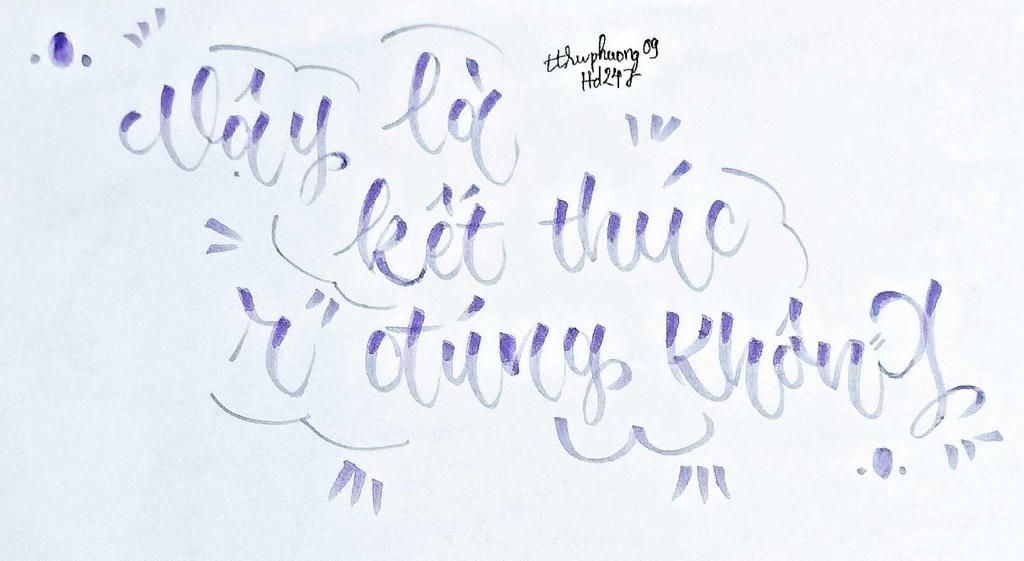 Vậy là
tthuphuong09
Hd247
kết thúc
rồi đúng không